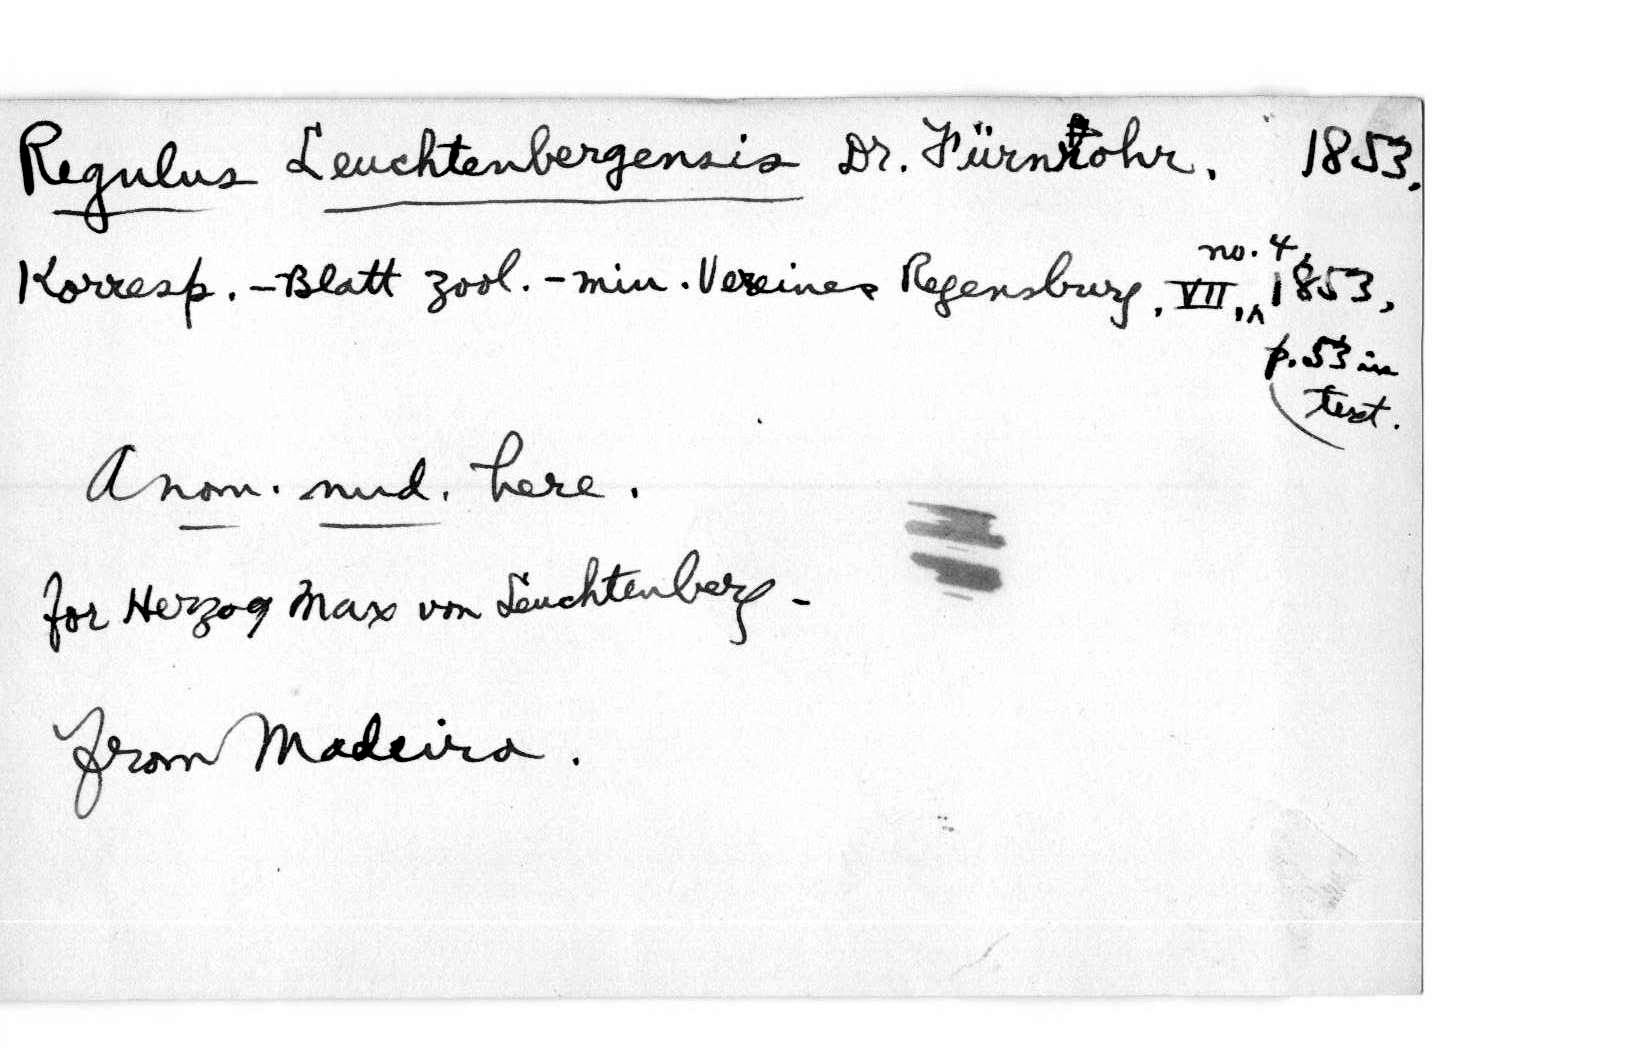 Regulus Leuchtenbergensis Dr. Fürnrohr. 1853.
Korresp.-Blatt zool.-min. Vereines Regensburg, VII, no. 4, 1853,
p. 53 in
text.
A nom. nud. here.
for Herzog Max von Leuchtenberg -
from Madeira.